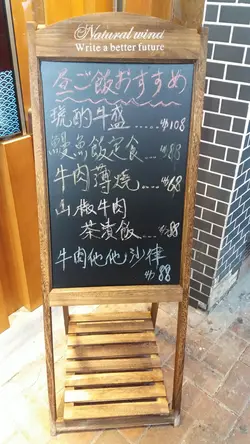 Natural wind
Write a better future
昼ご飯おすすめ
琥酌牛盛....¥108
鰻魚飯定食...¥88
牛肉薄燒....¥68
山椒牛肉
茶漬飯...¥88
牛肉他他沙律
¥88